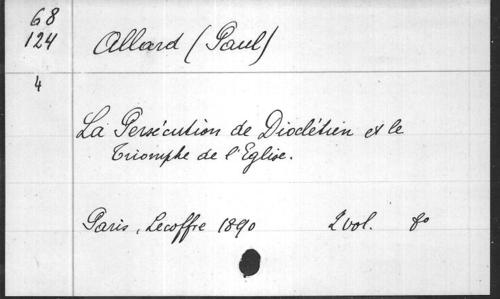 68
124
4
Allard (Paul)
La Persécution de Dioclétien et le
Triomphe de l'Eglise.
Paris, Lecoffre 1890 2 vol. 8o